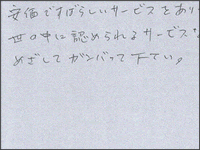 安価ですばらしいサービスをあり
世の中に認められるサービスを
めざしてガンバって下さい。